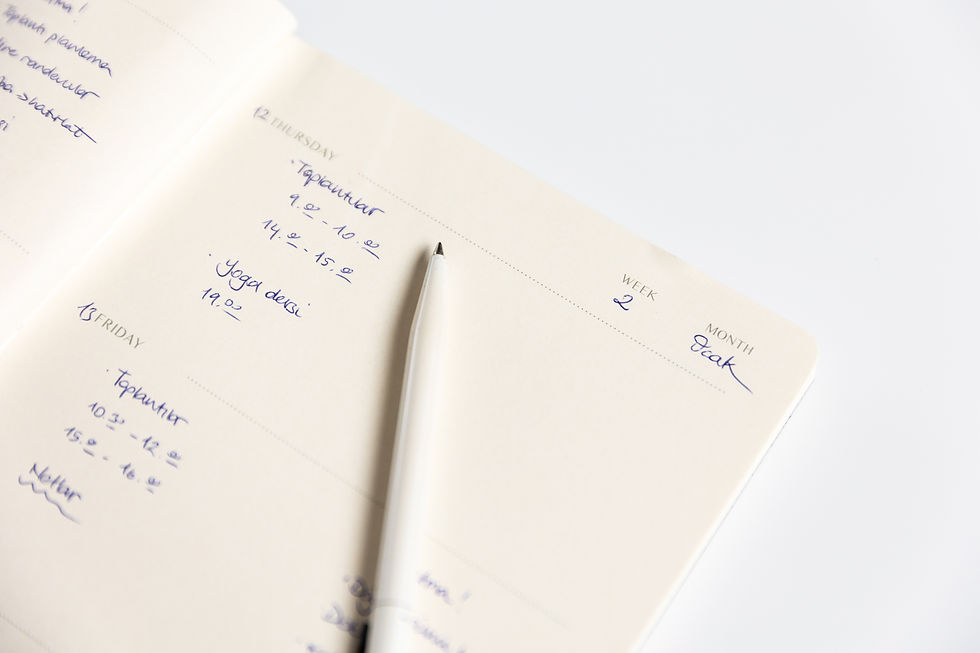 Toplantı planlama
randevular
hatırlat
12 THURSDAY
· Toplantılar
9.00 - 10.00
14.00 - 15.00
· Yoga dersi
19.00
WEEK
2
MONTH
Ocak
13 FRIDAY
· Toplantılar
10.30 - 12.00
15.00 - 16.00
Notlar